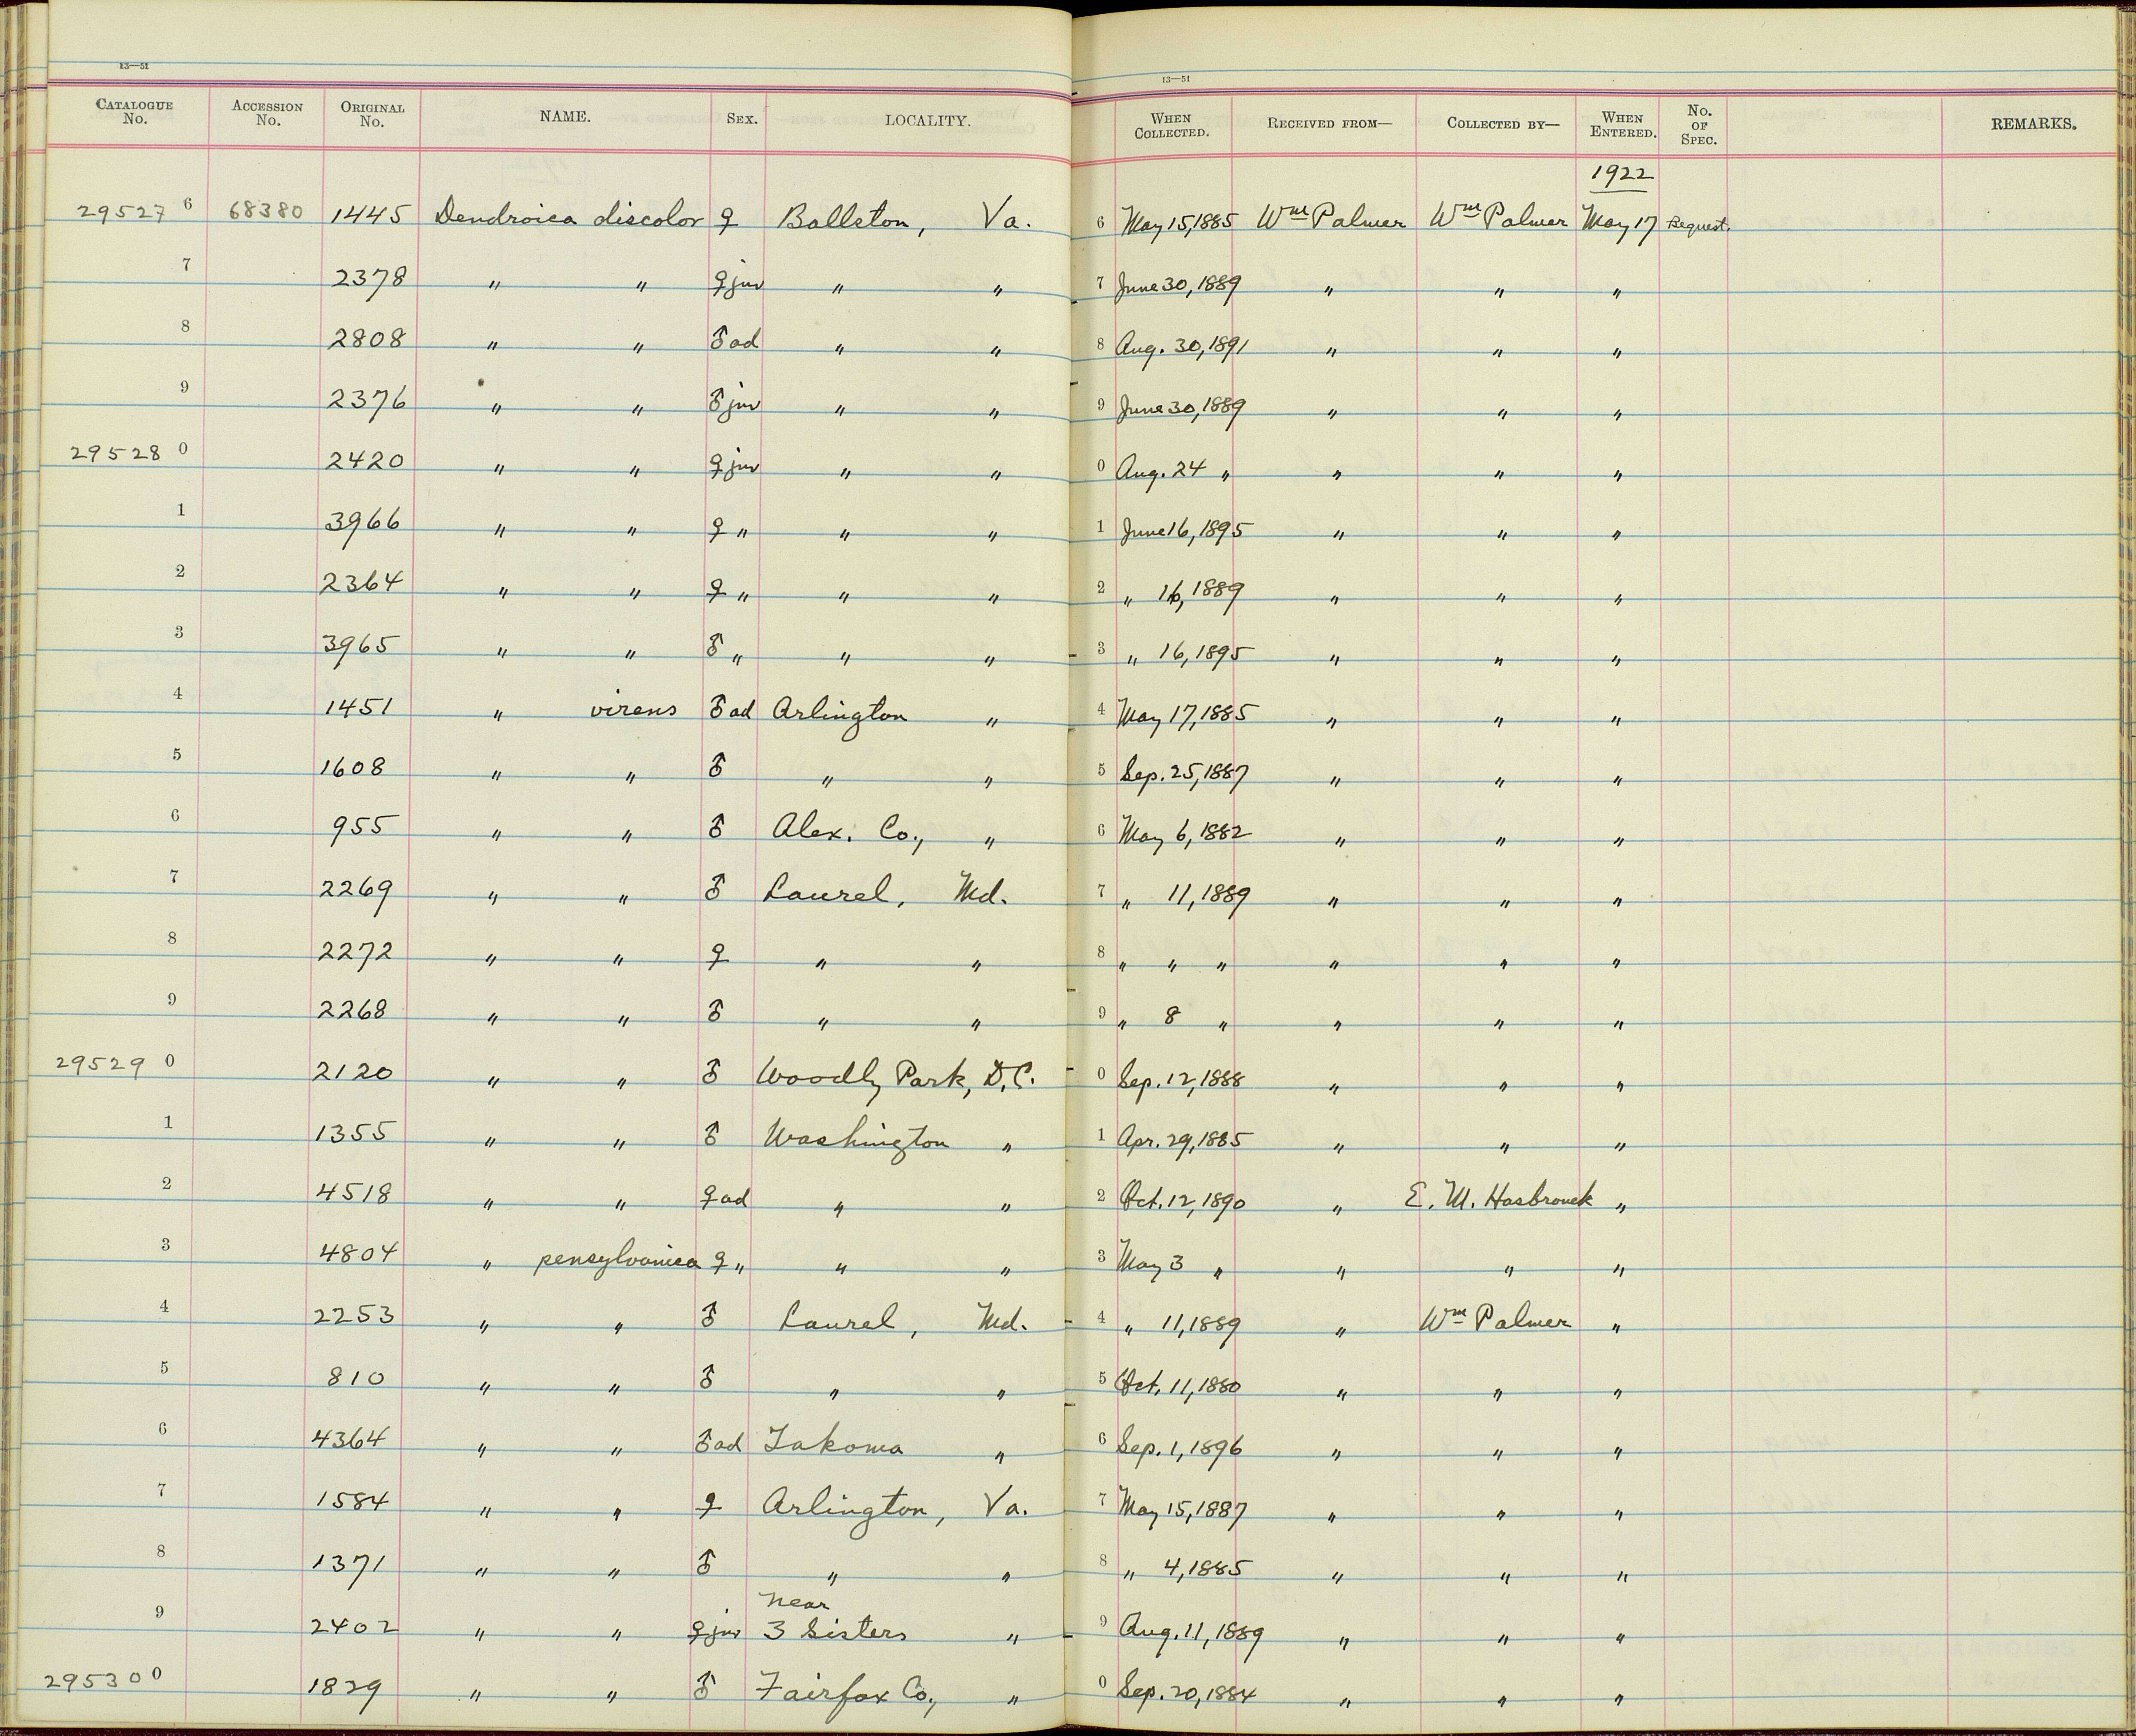 13—51 13—51
CATALOGUE No. ACCESSION No. ORIGINAL No. NAME. SEX. LOCALITY. WHEN COLLECTED. RECEIVED FROM— COLLECTED BY— WHEN ENTERED. No. OF SPEC. REMARKS.
1922
29527 6 68380 1445 Dendroica discolor ♀ Ballston, Va. 6 May 15, 1885 Wm Palmer Wm Palmer May 17 Bequest.
7 2378 " " ♀ juv " " 7 June 30, 1889 " " "
8 2808 " " ♂ ad " " 8 Aug. 30, 1891 " " "
9 2376 " " ♂ juv " " 9 June 30, 1889 " " "
29528 0 2420 " " ♀ juv " " 0 Aug. 24 " " " "
1 3966 " " ♀ " " " 1 June 16, 1895 " " "
2 2364 " " ♀ " " " 2 " 16, 1889 " " "
3 3965 " " ♂ " " " 3 " 16, 1895 " " "
4 1451 " virens ♂ ad Arlington " 4 May 17, 1885 " " "
5 1608 " " ♂ " " 5 Sep. 25, 1887 " " "
6 955 " " ♂ Alex. Co., " 6 May 6, 1882 " " "
7 2269 " " ♂ Laurel, Md. 7 " 11, 1889 " " "
8 2272 " " ♀ " " 8 " " " " " "
9 2268 " " ♂ " " 9 " 8 " " " "
29529 0 2120 " " ♂ Woodly Park, D.C. 0 Sep. 12, 1888 " " "
1 1355 " " ♂ Washington " 1 Apr. 29, 1885 " " "
2 4518 " " ♀ ad " " 2 Oct. 12, 1890 " E. M. Hasbrouck "
3 4804 " pensylvanica ♀ " " " 3 May 3 " " " "
4 2253 " " ♂ Laurel, Md. 4 " 11, 1889 " Wm Palmer "
5 810 " " ♂ " " 5 Oct. 11, 1880 " " "
6 4364 " " ♂ ad Takoma " 6 Sep. 1, 1896 " " "
7 1584 " " ♀ Arlington, Va. 7 May 15, 1887 " " "
8 1371 " " ♂ " " 8 " 4, 1885 " " "
near
9 2402 " " ♀ juv 3 Sisters " 9 Aug. 11, 1889 " " "
29530 0 1829 " " ♂ Fairfax Co., " 0 Sep. 20, 1884 " " "